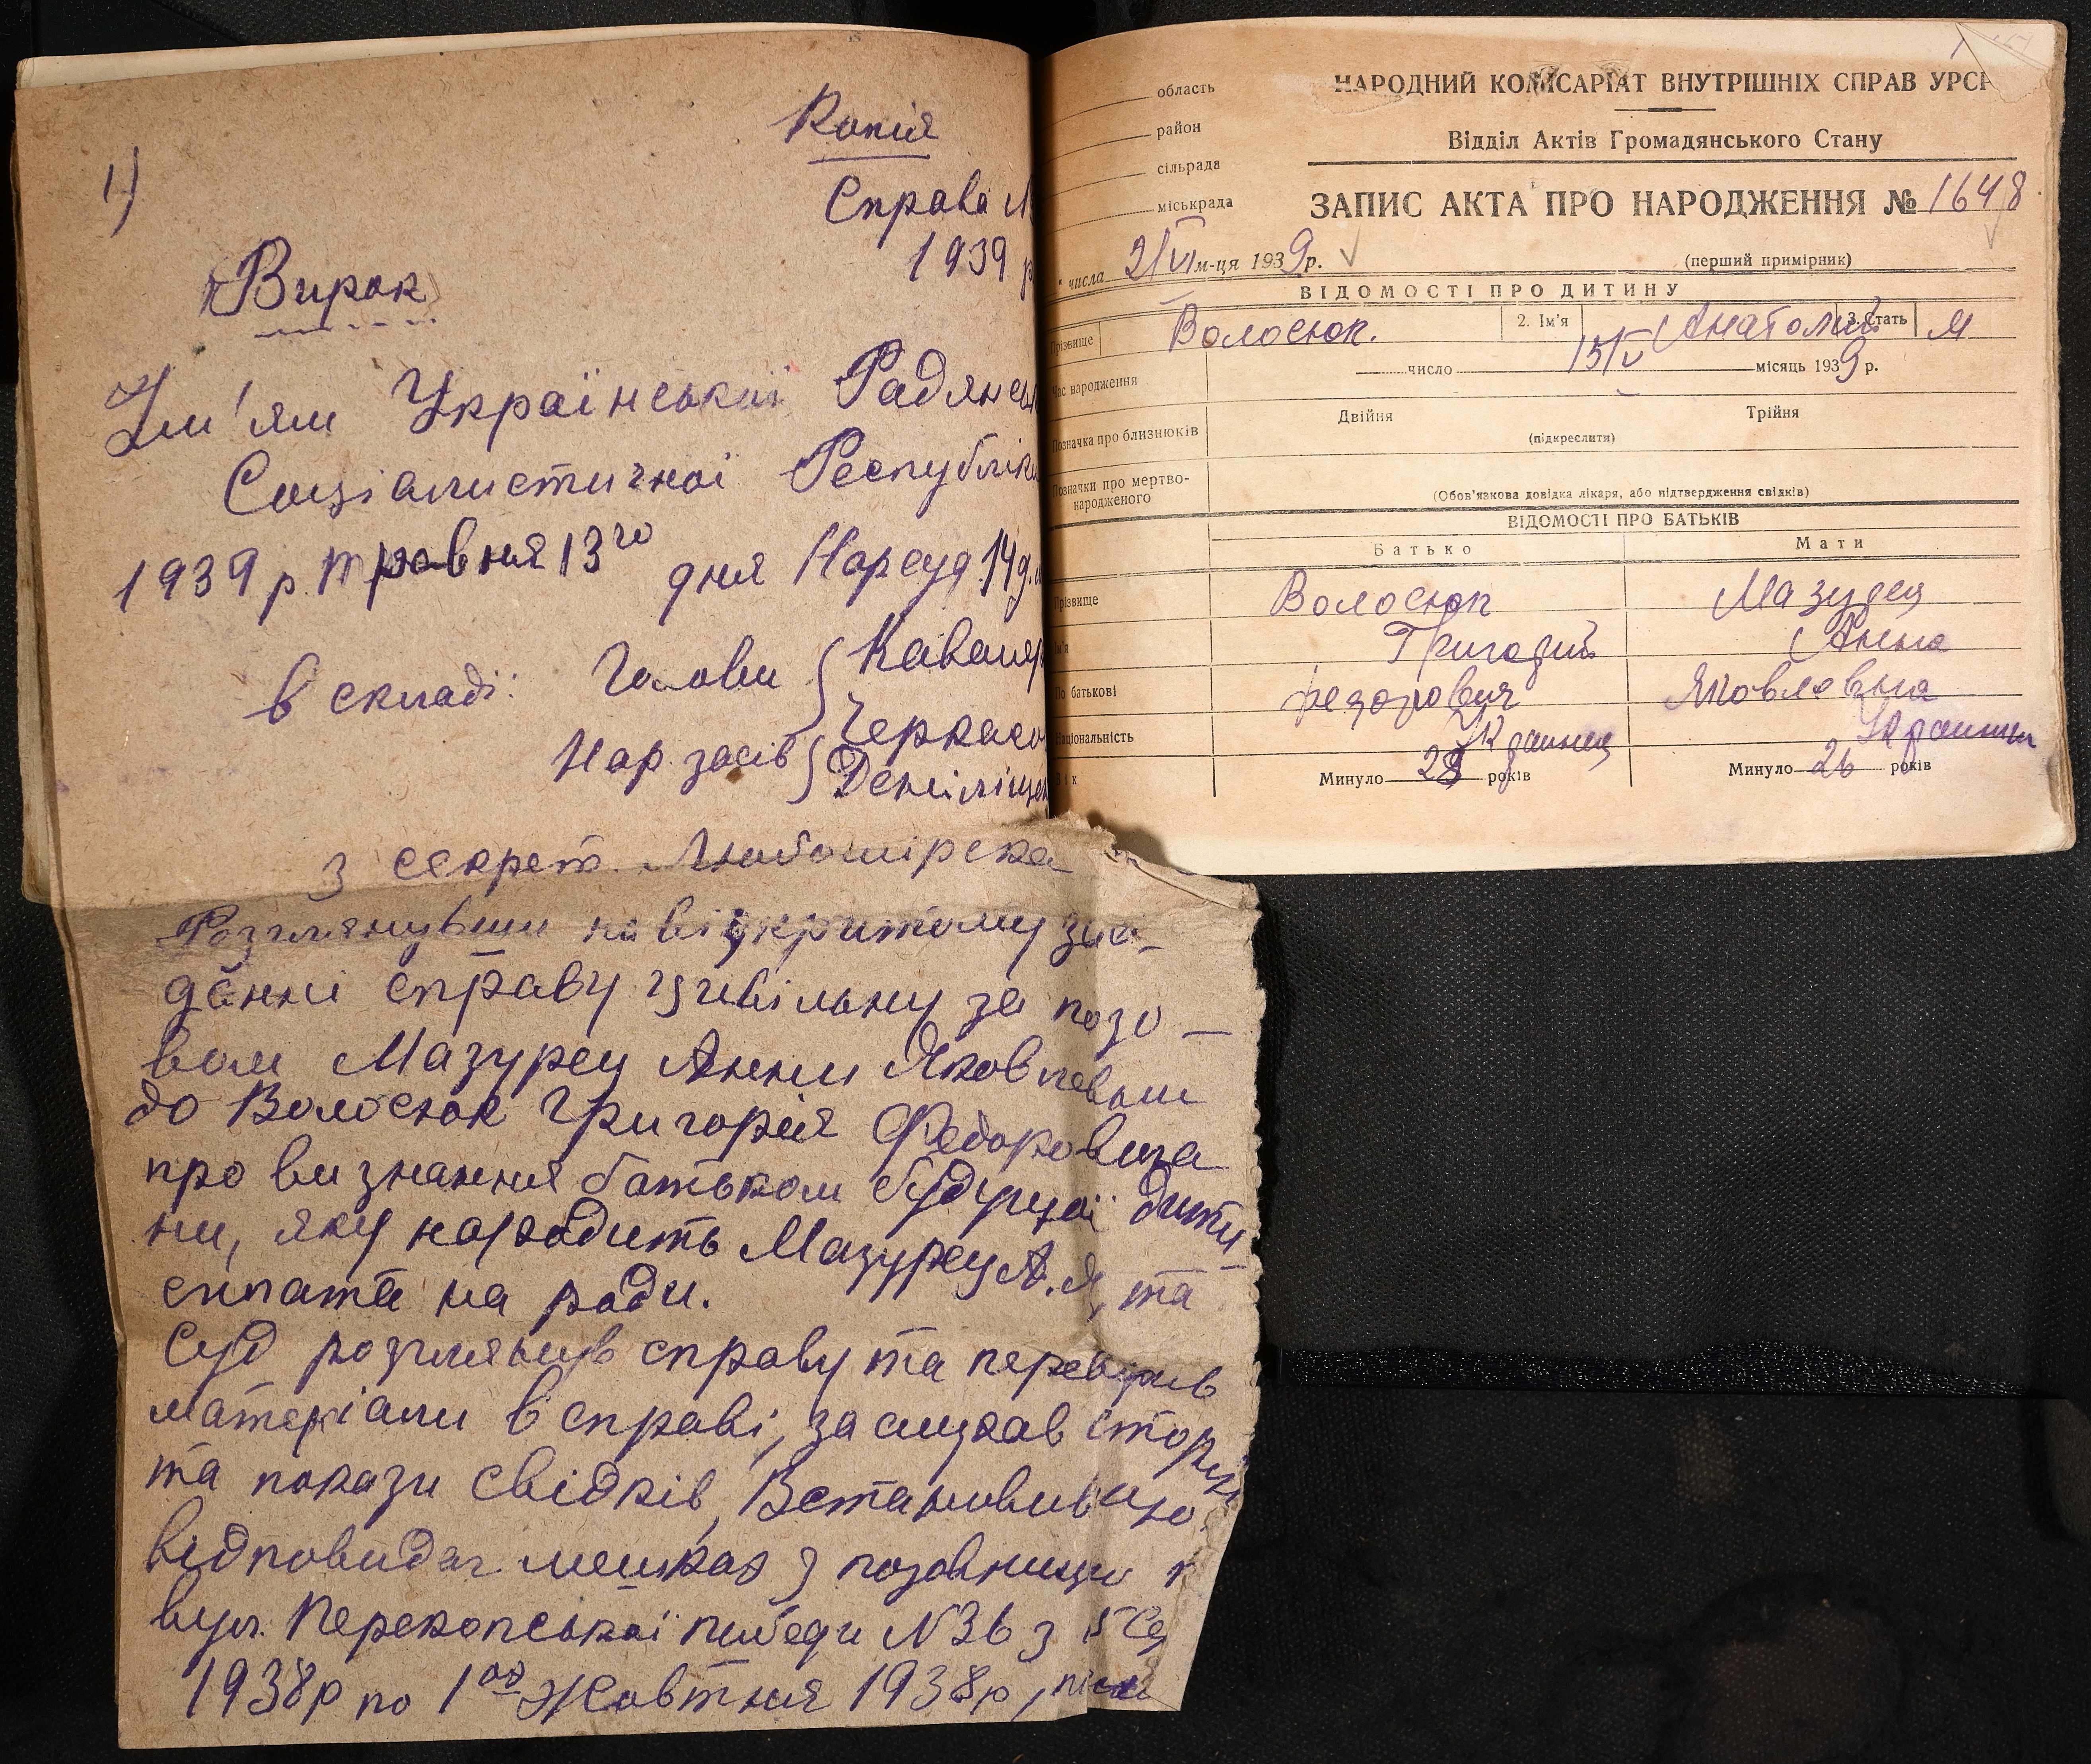 1)
Копія
Справа №
1939 р
Вирок
Ім'ям Української Радянсь
Соціалистичної Республіки
1939 р. травня 13го дня Нарсуд 14 д.
в складі: Голови Кавалер
Нар. засів Черкасо
Денiліщен
з секрет. Любомірска
Розглянувши на відкритому зас-
данні справу цивільну за позо-
вом Мазурец Анни Яковлевни
до Волосюк Григорія Федоровича
про визнання батьком будущої дити
ни, яку народить Мазурец А.Я, та
сплата на роди.
Суд розглянув справу та перевірив
матеріали в справі, заслухав сторони
та покази свідків, Встановив що
відповидач мешкав з позовницею
вул. Перекопської победи N36 з 15
1938р по 1ое Жовтня 1938р, після
НАРОДНИЙ КОМІСАРІАТ ВНУТРІШНІХ СПРАВ УРСР
область
район
сільрада
міськрада
Відділ Актів Громадянського Стану
ЗАПИС АКТА ПРО НАРОДЖЕННЯ № 1648
" числа 2/VI м-ця 1939 р.
(перший примірник)
ВІДОМОСТІ ПРО ДИТИНУ
Прізвище Волосюк. 2. Ім'я Анатолий 3. Стать М
Час народження число 15/V місяць 1939 р.
Позначка про близнюків Двійня Трійня
(підкреслити)
Позначки про мертво-
народженого
(Обов'язкова довідка лікаря, або підтвердження свідків)
ВІДОМОСТІ ПРО БАТЬКІВ
Батько Мати
Прізвище Волосюк Мазурец
Ім'я Григорий Анна
По батькові Федорович Яковлевна
Національність Украинец Украинка
Вік Минуло 28 років Минуло 26 років